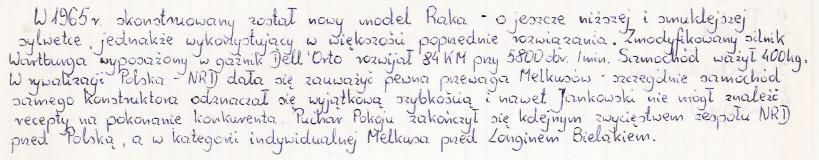 W 1965 r. skonstruowany został nowy model Raka - o jeszcze niższej i smuklejszej
sylwetce, jednakże wykorzystujący w większości poprzednie rozwiązania. Zmodyfikowany silnik
Wartburga wyposażony w gaźnik Dell'Orto rozwijał 84 KM przy 5800 obr. /min. Samochód ważył 400kg.
W rywalizacji Polska - NRD dała się zauważyć pewna przewaga Melkusów - szczególnie samochód
samego konstruktora odznaczał się wyjątkową szybkością i nawet Jankowski nie mógł znaleźć
recepty na pokonanie konkurenta. Puchar Pokoju zakończył się kolejnym zwycięstwem zespołu NRD
przed Polską, a w kategorii indywidualnej Melkusa przed Longinem Bielakiem.